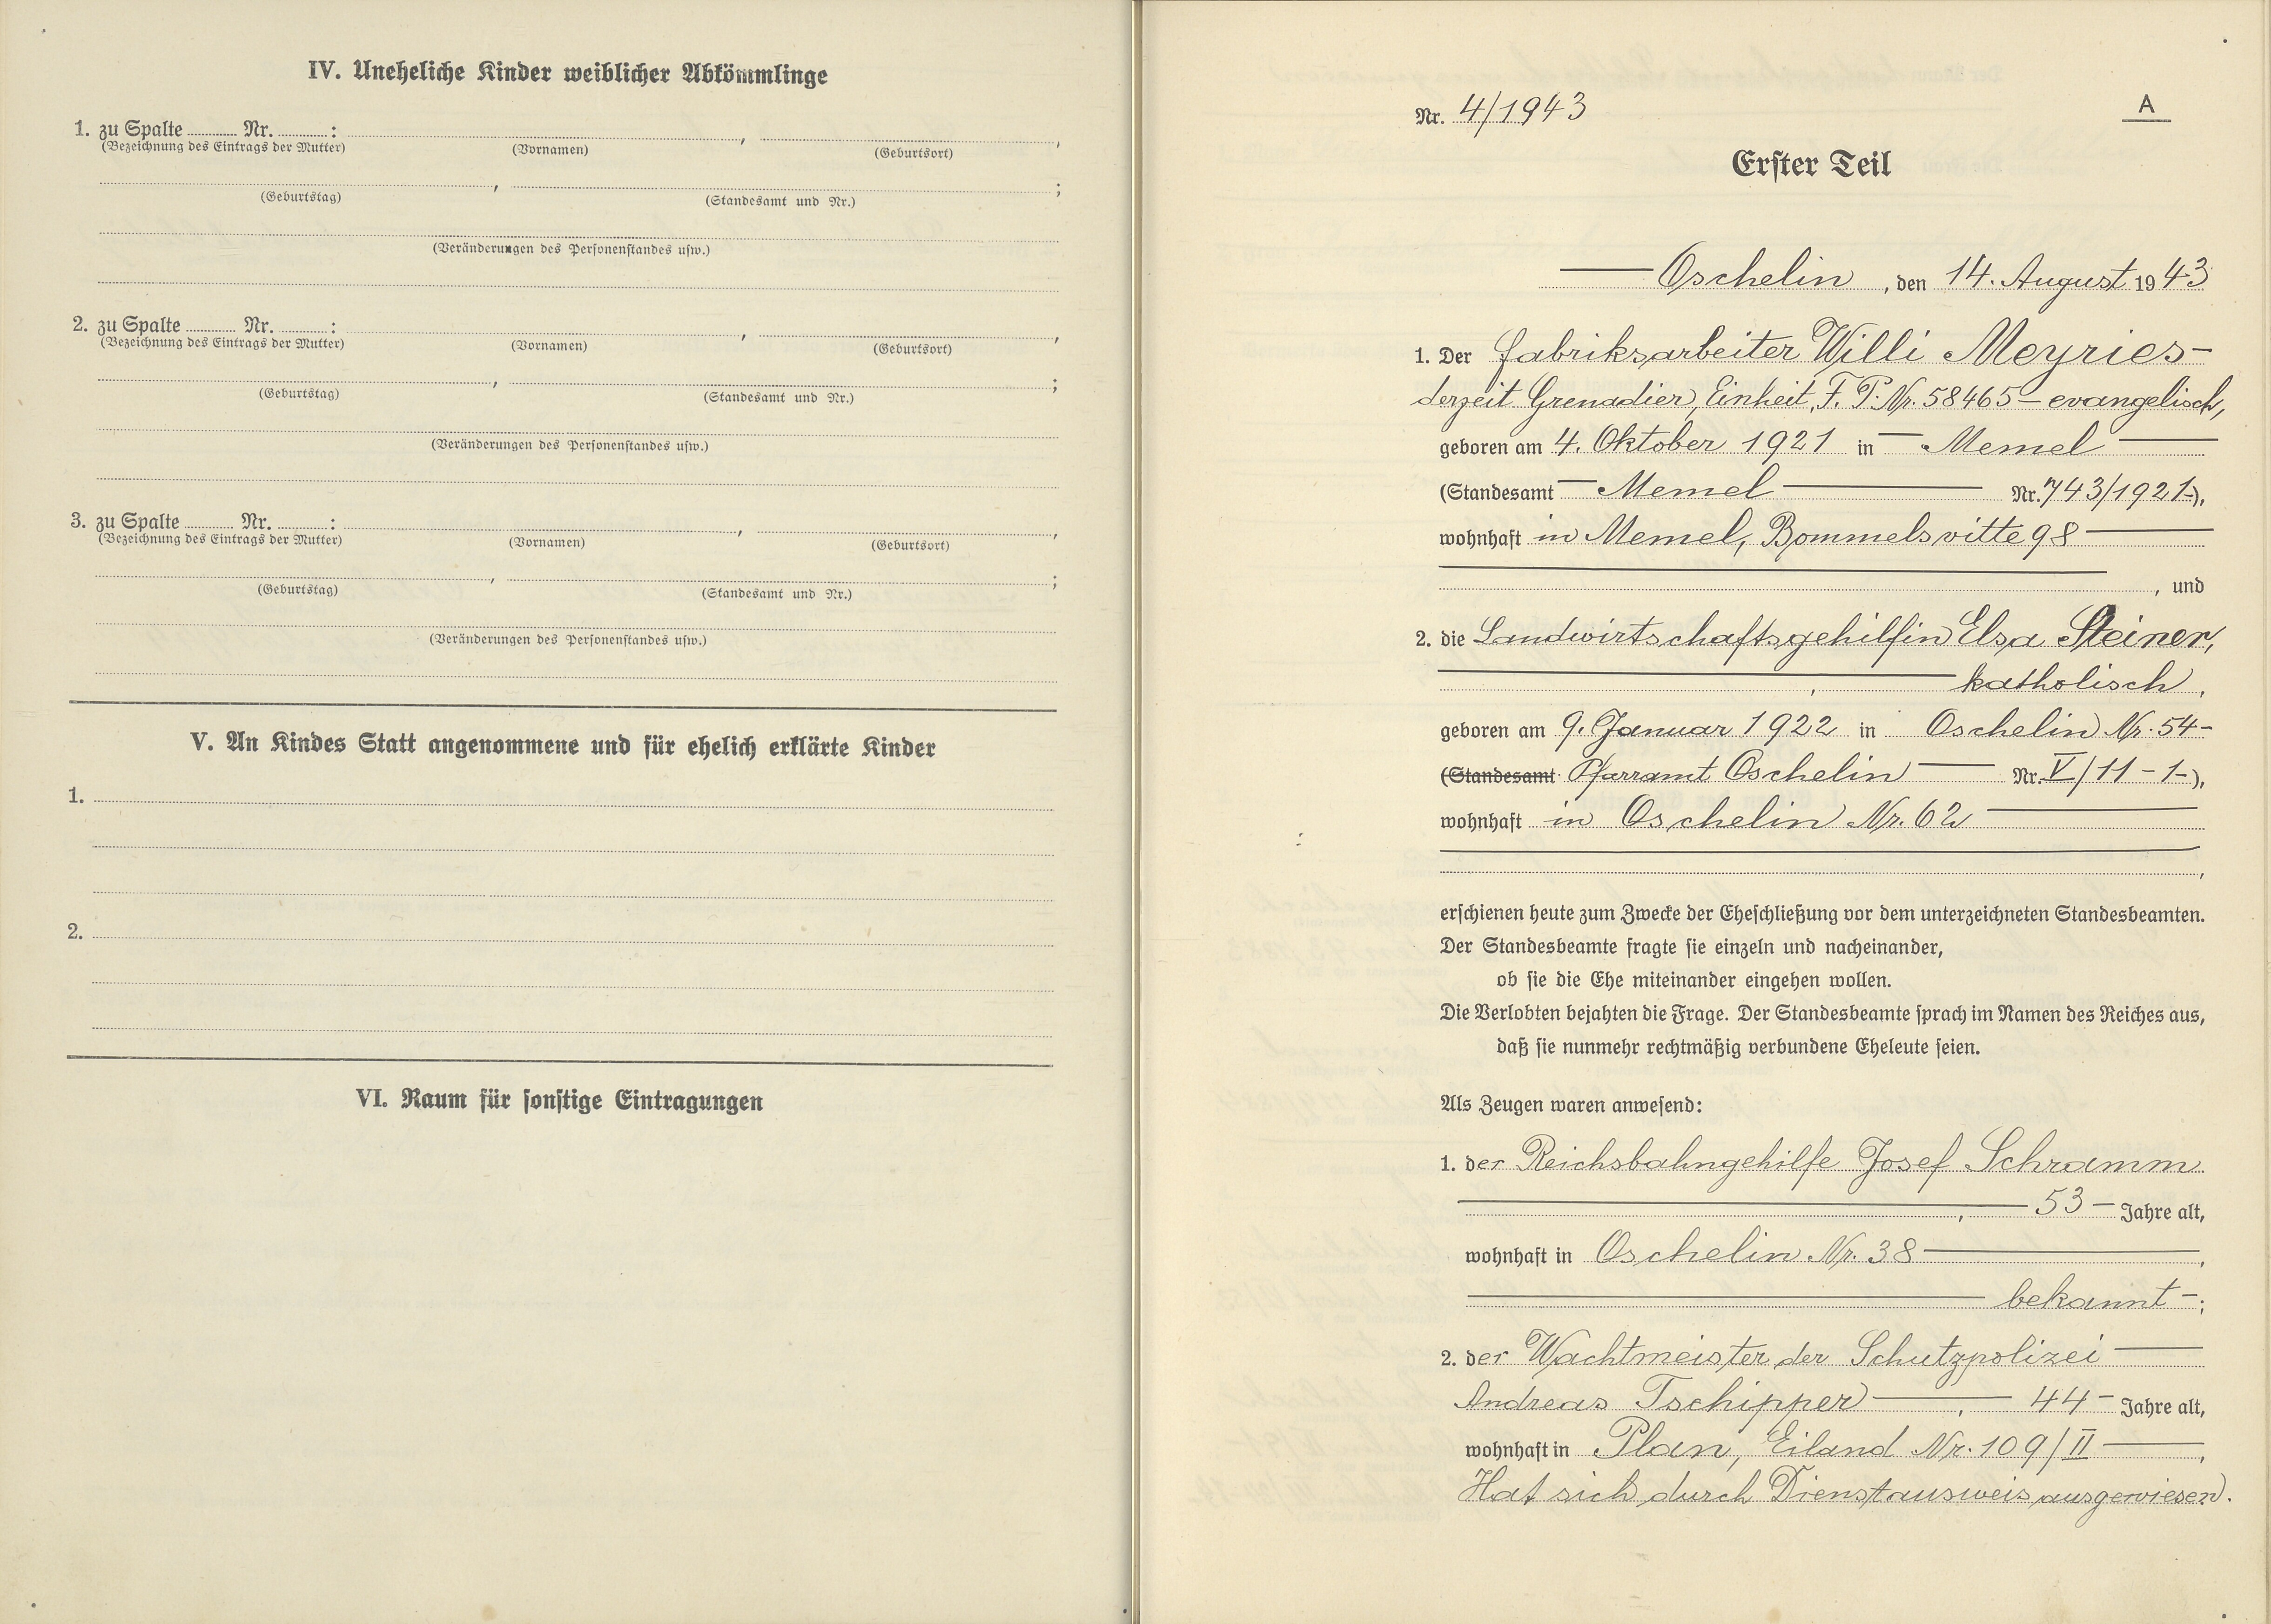 IV. Uneheliche Kinder weiblicher Abkömmlinge
1. zu Spalte ......... Nr. ......... : , ,
(Bezeichnung des Eintrags der Mutter) (Vornamen) (Geburtsort)
, ;
(Geburtstag) (Standesamt und Nr.)
(Veränderungen des Personenstandes usw.)
2. zu Spalte ......... Nr. ......... : , ,
(Bezeichnung des Eintrags der Mutter) (Vornamen) (Geburtsort)
, ;
(Geburtstag) (Standesamt und Nr.)
(Veränderungen des Personenstandes usw.)
3. zu Spalte ......... Nr. ......... : , ,
(Bezeichnung des Eintrags der Mutter) (Vornamen) (Geburtsort)
, ;
(Geburtstag) (Standesamt und Nr.)
(Veränderungen des Personenstandes usw.)
V. An Kindes Statt angenommene und für ehelich erklärte Kinder
1.
2.
VI. Raum für sonstige Eintragungen
Nr. 4/1943 A
Erster Teil
— Oschelin, den 14. August 1943
1. Der Fabriksarbeiter Willi Meyries-
derzeit Grenadier, Einheit, F. P. Nr. 58465 – evangelisch,
geboren am 4. Oktober 1921 in — Memel —
(Standesamt — Memel — Nr. 743/1921-),
wohnhaft in Memel, Bommelsvitte 98 —
, und
2. die Landwirtschaftsgehilfin Elsa Steiner,
— katholisch,
geboren am 9. Januar 1922 in Oschelin Nr. 54-
(Standesamt Pfarramt Oschelin — Nr. V/11-1-),
wohnhaft in Oschelin Nr. 62 —
,
erschienen heute zum Zwecke der Eheschließung vor dem unterzeichneten Standesbeamten.
Der Standesbeamte fragte sie einzeln und nacheinander,
ob sie die Ehe miteinander eingehen wollen.
Die Verlobten bejahten die Frage. Der Standesbeamte sprach im Namen des Reiches aus,
daß sie nunmehr rechtmäßig verbundene Eheleute seien.
Als Zeugen waren anwesend:
1. der Reichsbahngehilfe Josef Schramm
—, — 53 – Jahre alt,
wohnhaft in Oschelin Nr. 38 —,
— bekannt –;
2. der Wachtmeister der Schutzpolizei —
Andreas Tschipper —, — 44 – Jahre alt,
wohnhaft in Plan, Eiland Nr. 109/II —,
Hat sich durch Dienstausweis ausgewiesen.